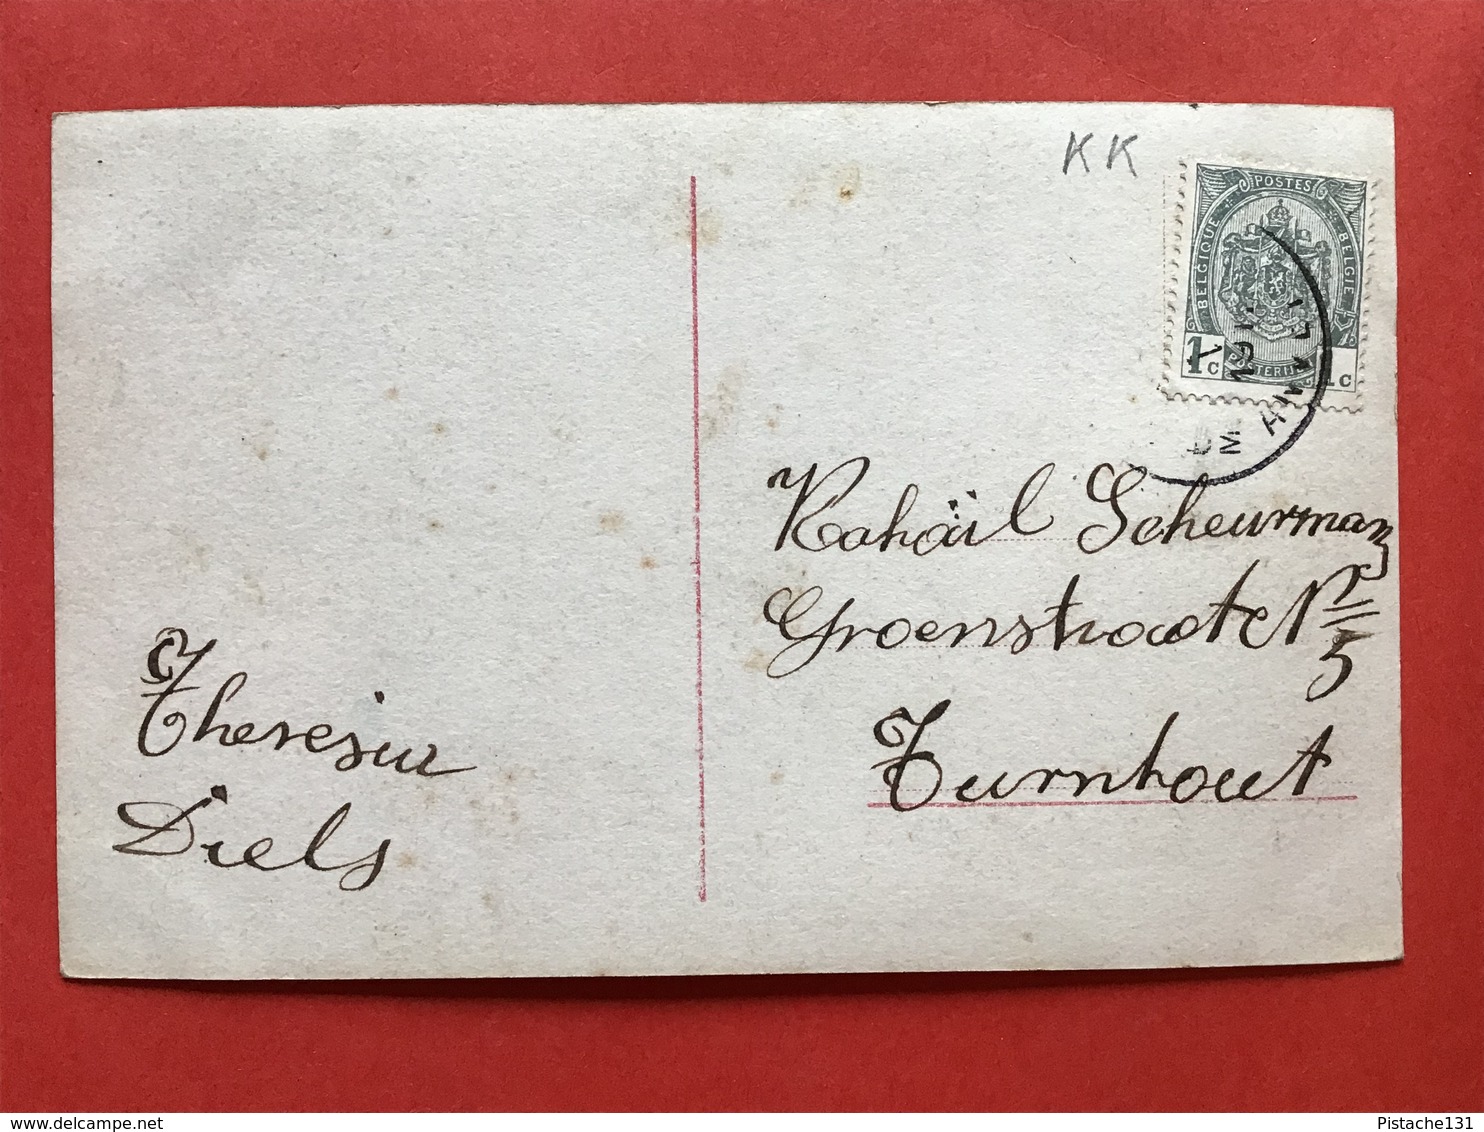 KK
POSTES
BELGIQUE
BELGIE
1c
1c
Rahaïl Scheurmans
Groenstraate Nr
5
Turnhout
Theresia
Diels
www.delcampe.net
Pistache131